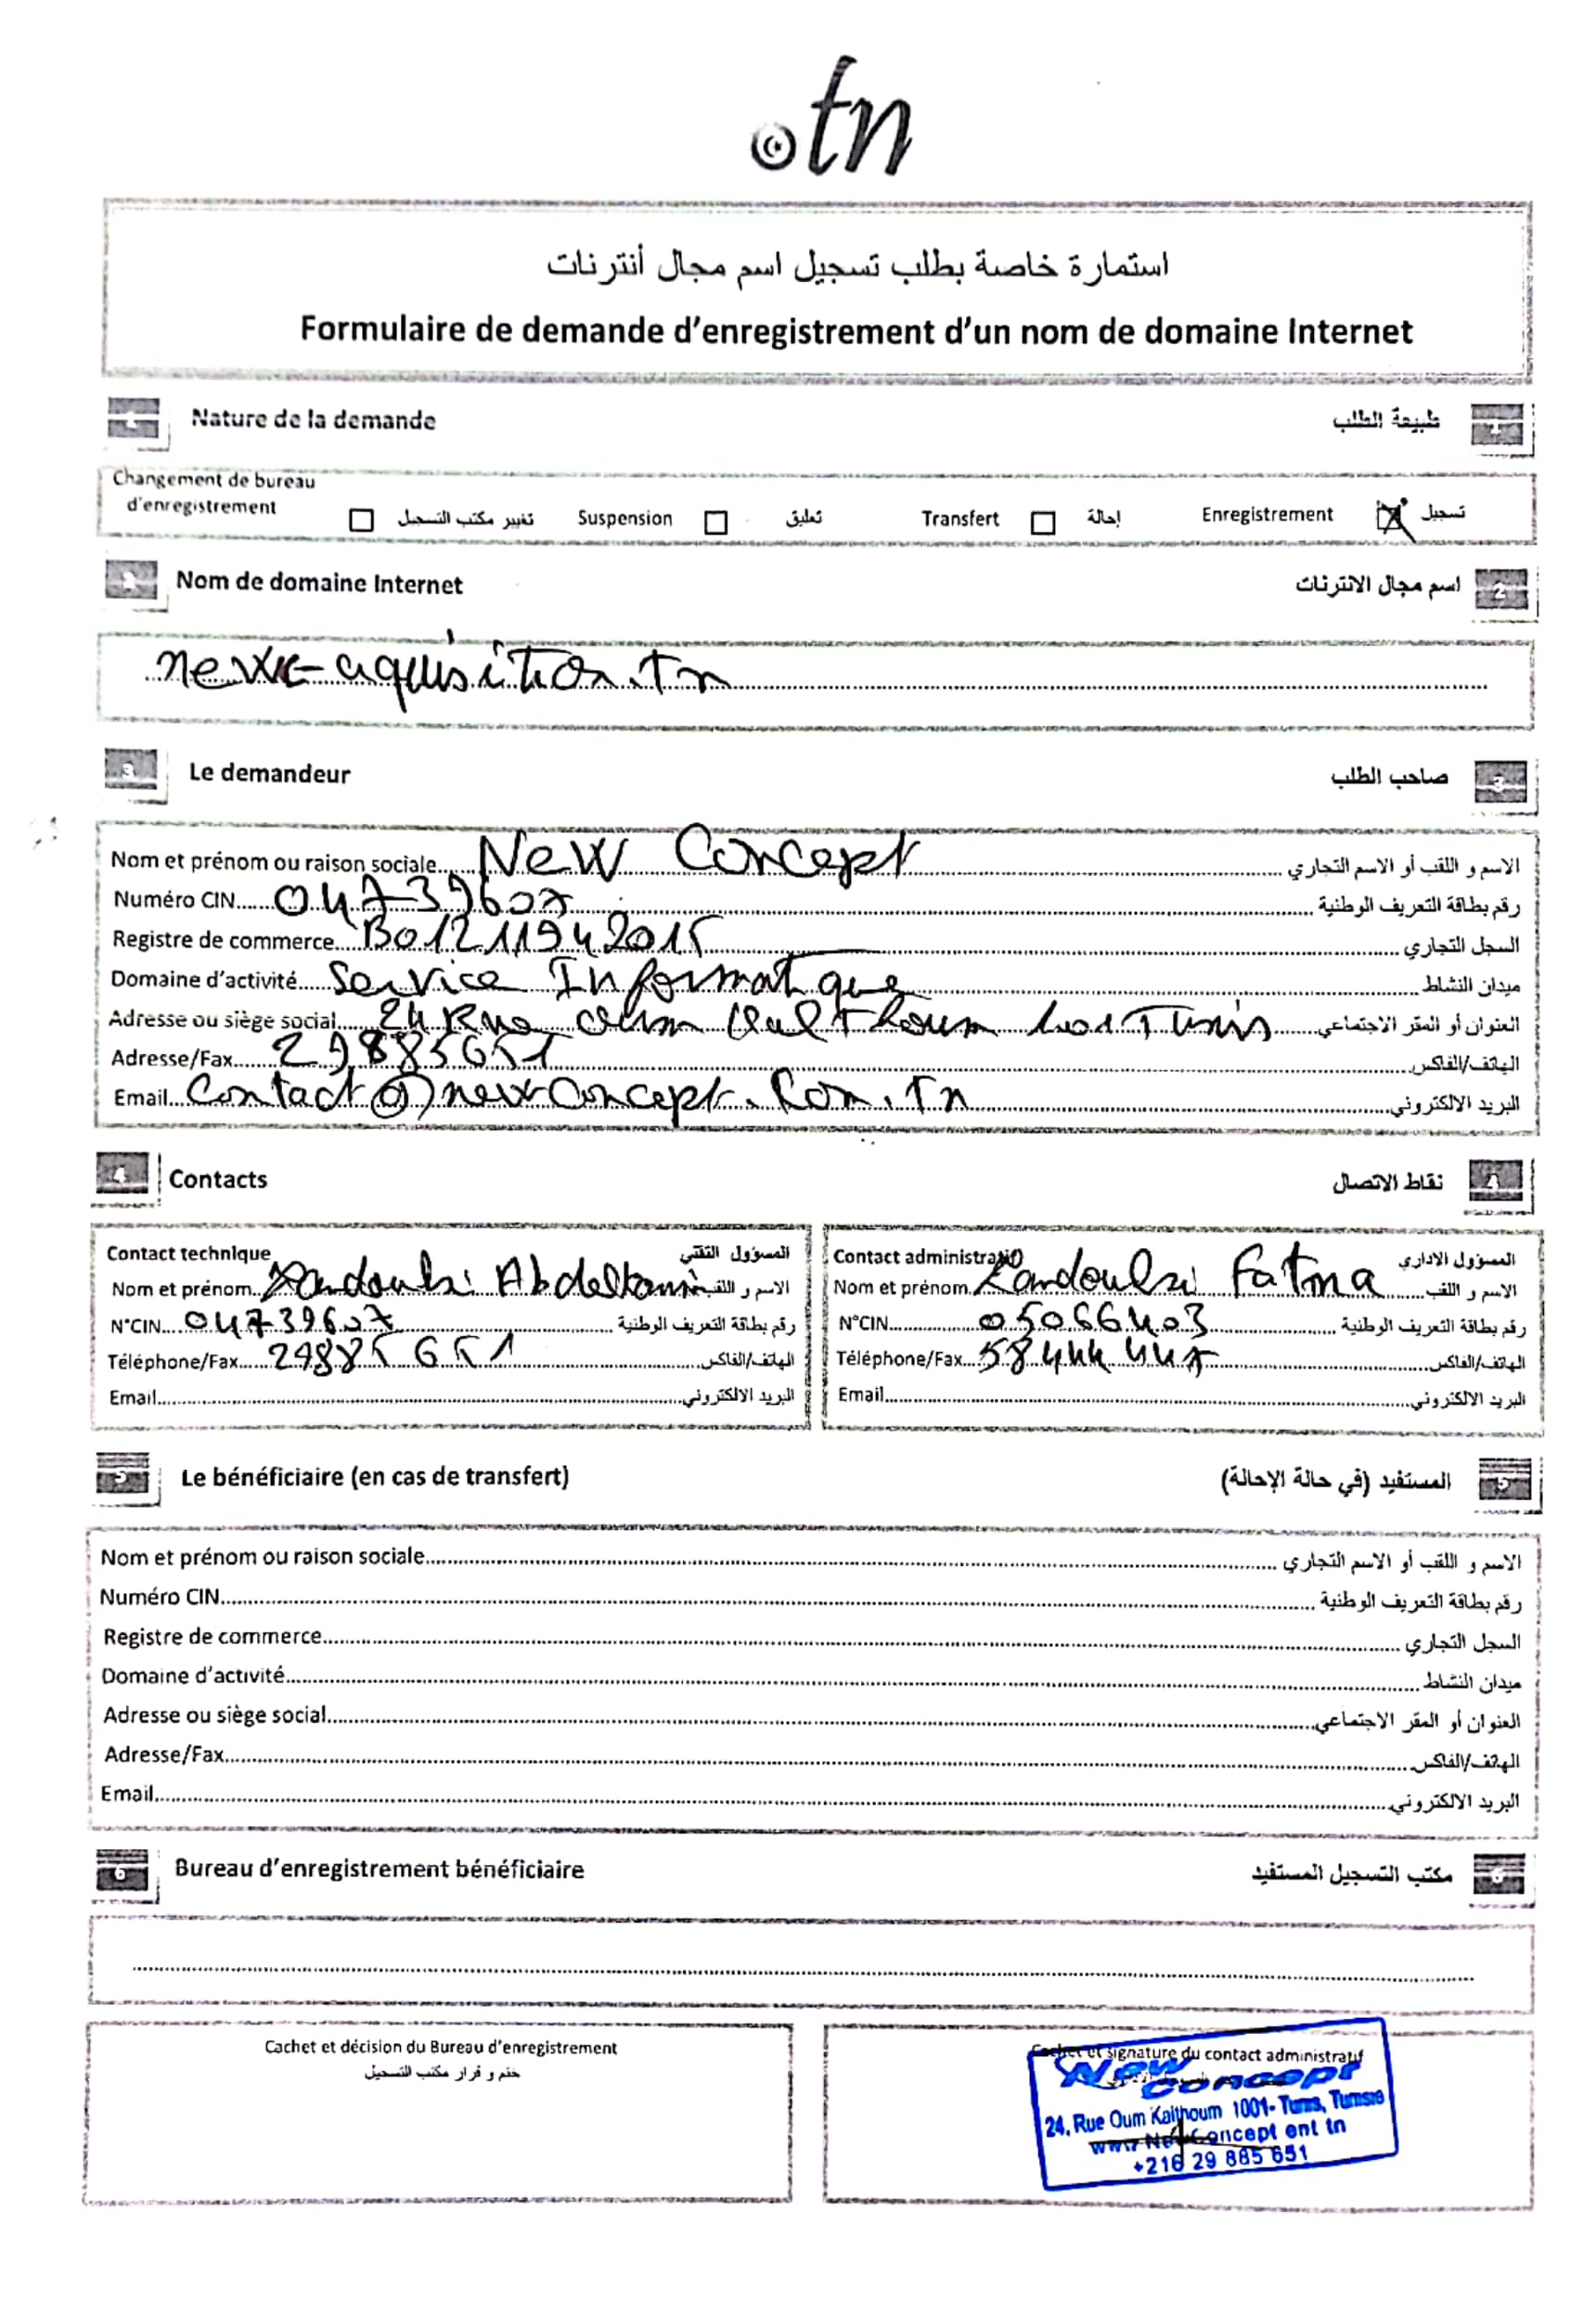 .tn
استمارة خاصة بطلب تسجيل اسم مجال أنترنات
Formulaire de demande d'enregistrement d'un nom de domaine Internet
1 Nature de la demande طبيعة الطلب 1
Changement de bureau d'enregistrement تغيير مكتب التسجيل Suspension تعليق Transfert إحالة Enregistrement X تسجيل
2 Nom de domaine Internet اسم مجال الانترنات 2
aquisition.tn
3 Le demandeur صاحب الطلب 3
Nom et prénom ou raison sociale New Concept الاسم و اللقب أو الاسم التجاري
Numéro CIN 04739607 رقم بطاقة التعريف الوطنية
Registre de commerce B01211942015 السجل التجاري
Domaine d'activité Service Informatique ميدان النشاط
Adresse ou siège social 24 Rue Oum Kalthoum 1001 Tunis العنوان أو المقر الاجتماعي
Adresse/Fax 29885651 الهاتف/الفاكس
Email Contact@newConcept.Com.Tn البريد الالكتروني
4 Contacts نقاط الاتصال 4
Contact technique المسؤول التقني
Nom et prénom الاسم و اللقب
N°CIN 04739607 رقم بطاقة التعريف الوطنية
Téléphone/Fax 29885651 الهاتف/الفاكس
Email البريد الالكتروني
Contact administratif المسؤول الاداري
Nom et prénom Fatma الاسم و اللقب
N°CIN 05066403 رقم بطاقة التعريف الوطنية
Téléphone/Fax 58444447 الهاتف/الفاكس
Email البريد الالكتروني
5 Le bénéficiaire (en cas de transfert) المستفيد (في حالة الإحالة) 5
Nom et prénom ou raison sociale الاسم و اللقب أو الاسم التجاري
Numéro CIN رقم بطاقة التعريف الوطنية
Registre de commerce السجل التجاري
Domaine d'activité ميدان النشاط
Adresse ou siège social العنوان أو المقر الاجتماعي
Adresse/Fax الهاتف/الفاكس
Email البريد الالكتروني
6 Bureau d'enregistrement bénéficiaire مكتب التسجيل المستفيد 6
Cachet et décision du Bureau d'enregistrement
ختم و قرار مكتب التسجيل
Cachet et signature du contact administratif
New Concept
24, Rue Oum Kalthoum 1001- Tunis, Tunisie
www NewConcept ent tn
+216 29 885 651